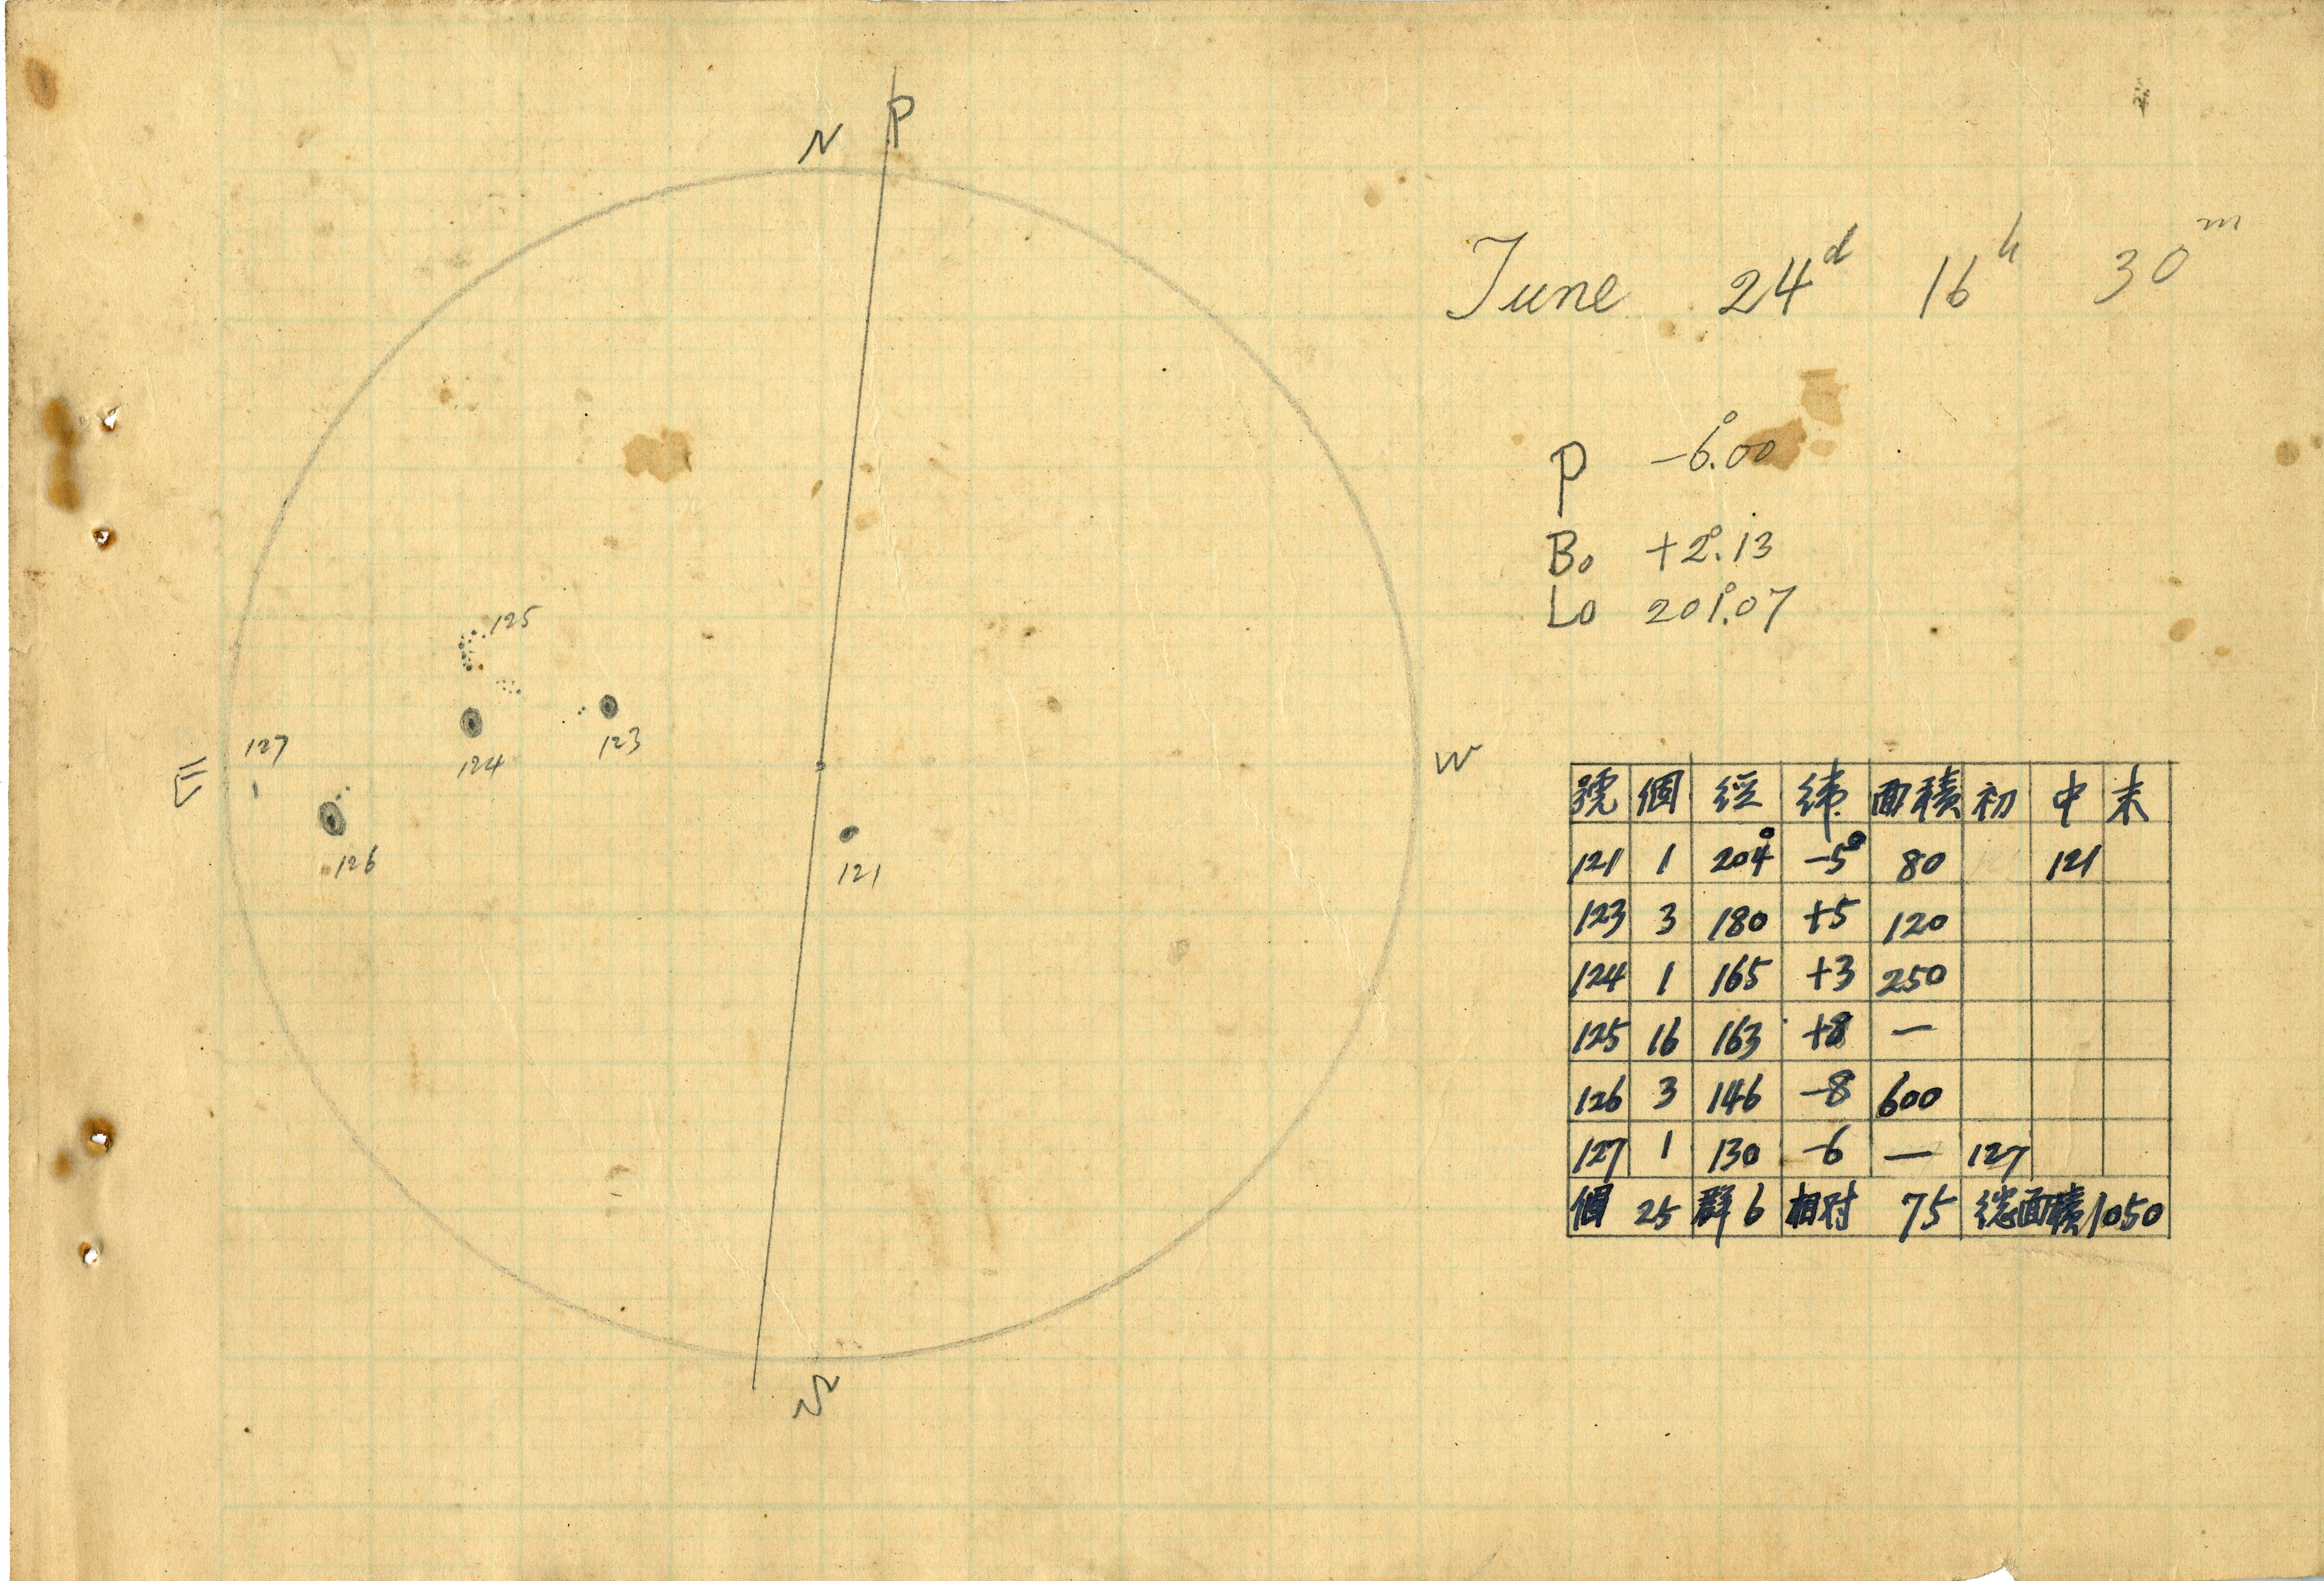 N P
June 24d 16h 30m
P -6°.00
B0 +2°.13
L0 201°.07
125
127
124
123
E
W
126
121
S
號 個 経 緯 面積 初 中 末
121 1 204° -5° 80 121
123 3 180 +5 120
124 1 165 +3 250
125 16 163 +8 —
126 3 146 -8 600
127 1 130 -6 — 127
個 25 群 6 相対 75 総面積 1050